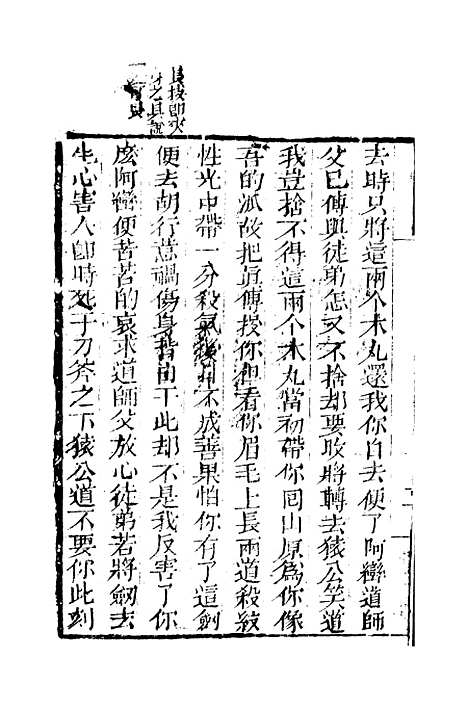 去時只將這兩个木丸還我你自去便了阿蠻道師
父已傳與徒弟怎又不捨却要收將轉去猿公笑道
我豈捨不得這兩个木丸當初帶你囘山原為你像
吾的派故把真傳授你但看你眉毛上長兩道殺紋
性光中帶一分殺氣後來不成善果怕你有了這劒
便去胡行惹禍傷身皆由于此却不是我反害了你
麽阿蠻便苦苦的哀求道師父放心徒弟若將劒去
生心害人卽時死于刀斧之下猿公道不要你此刻